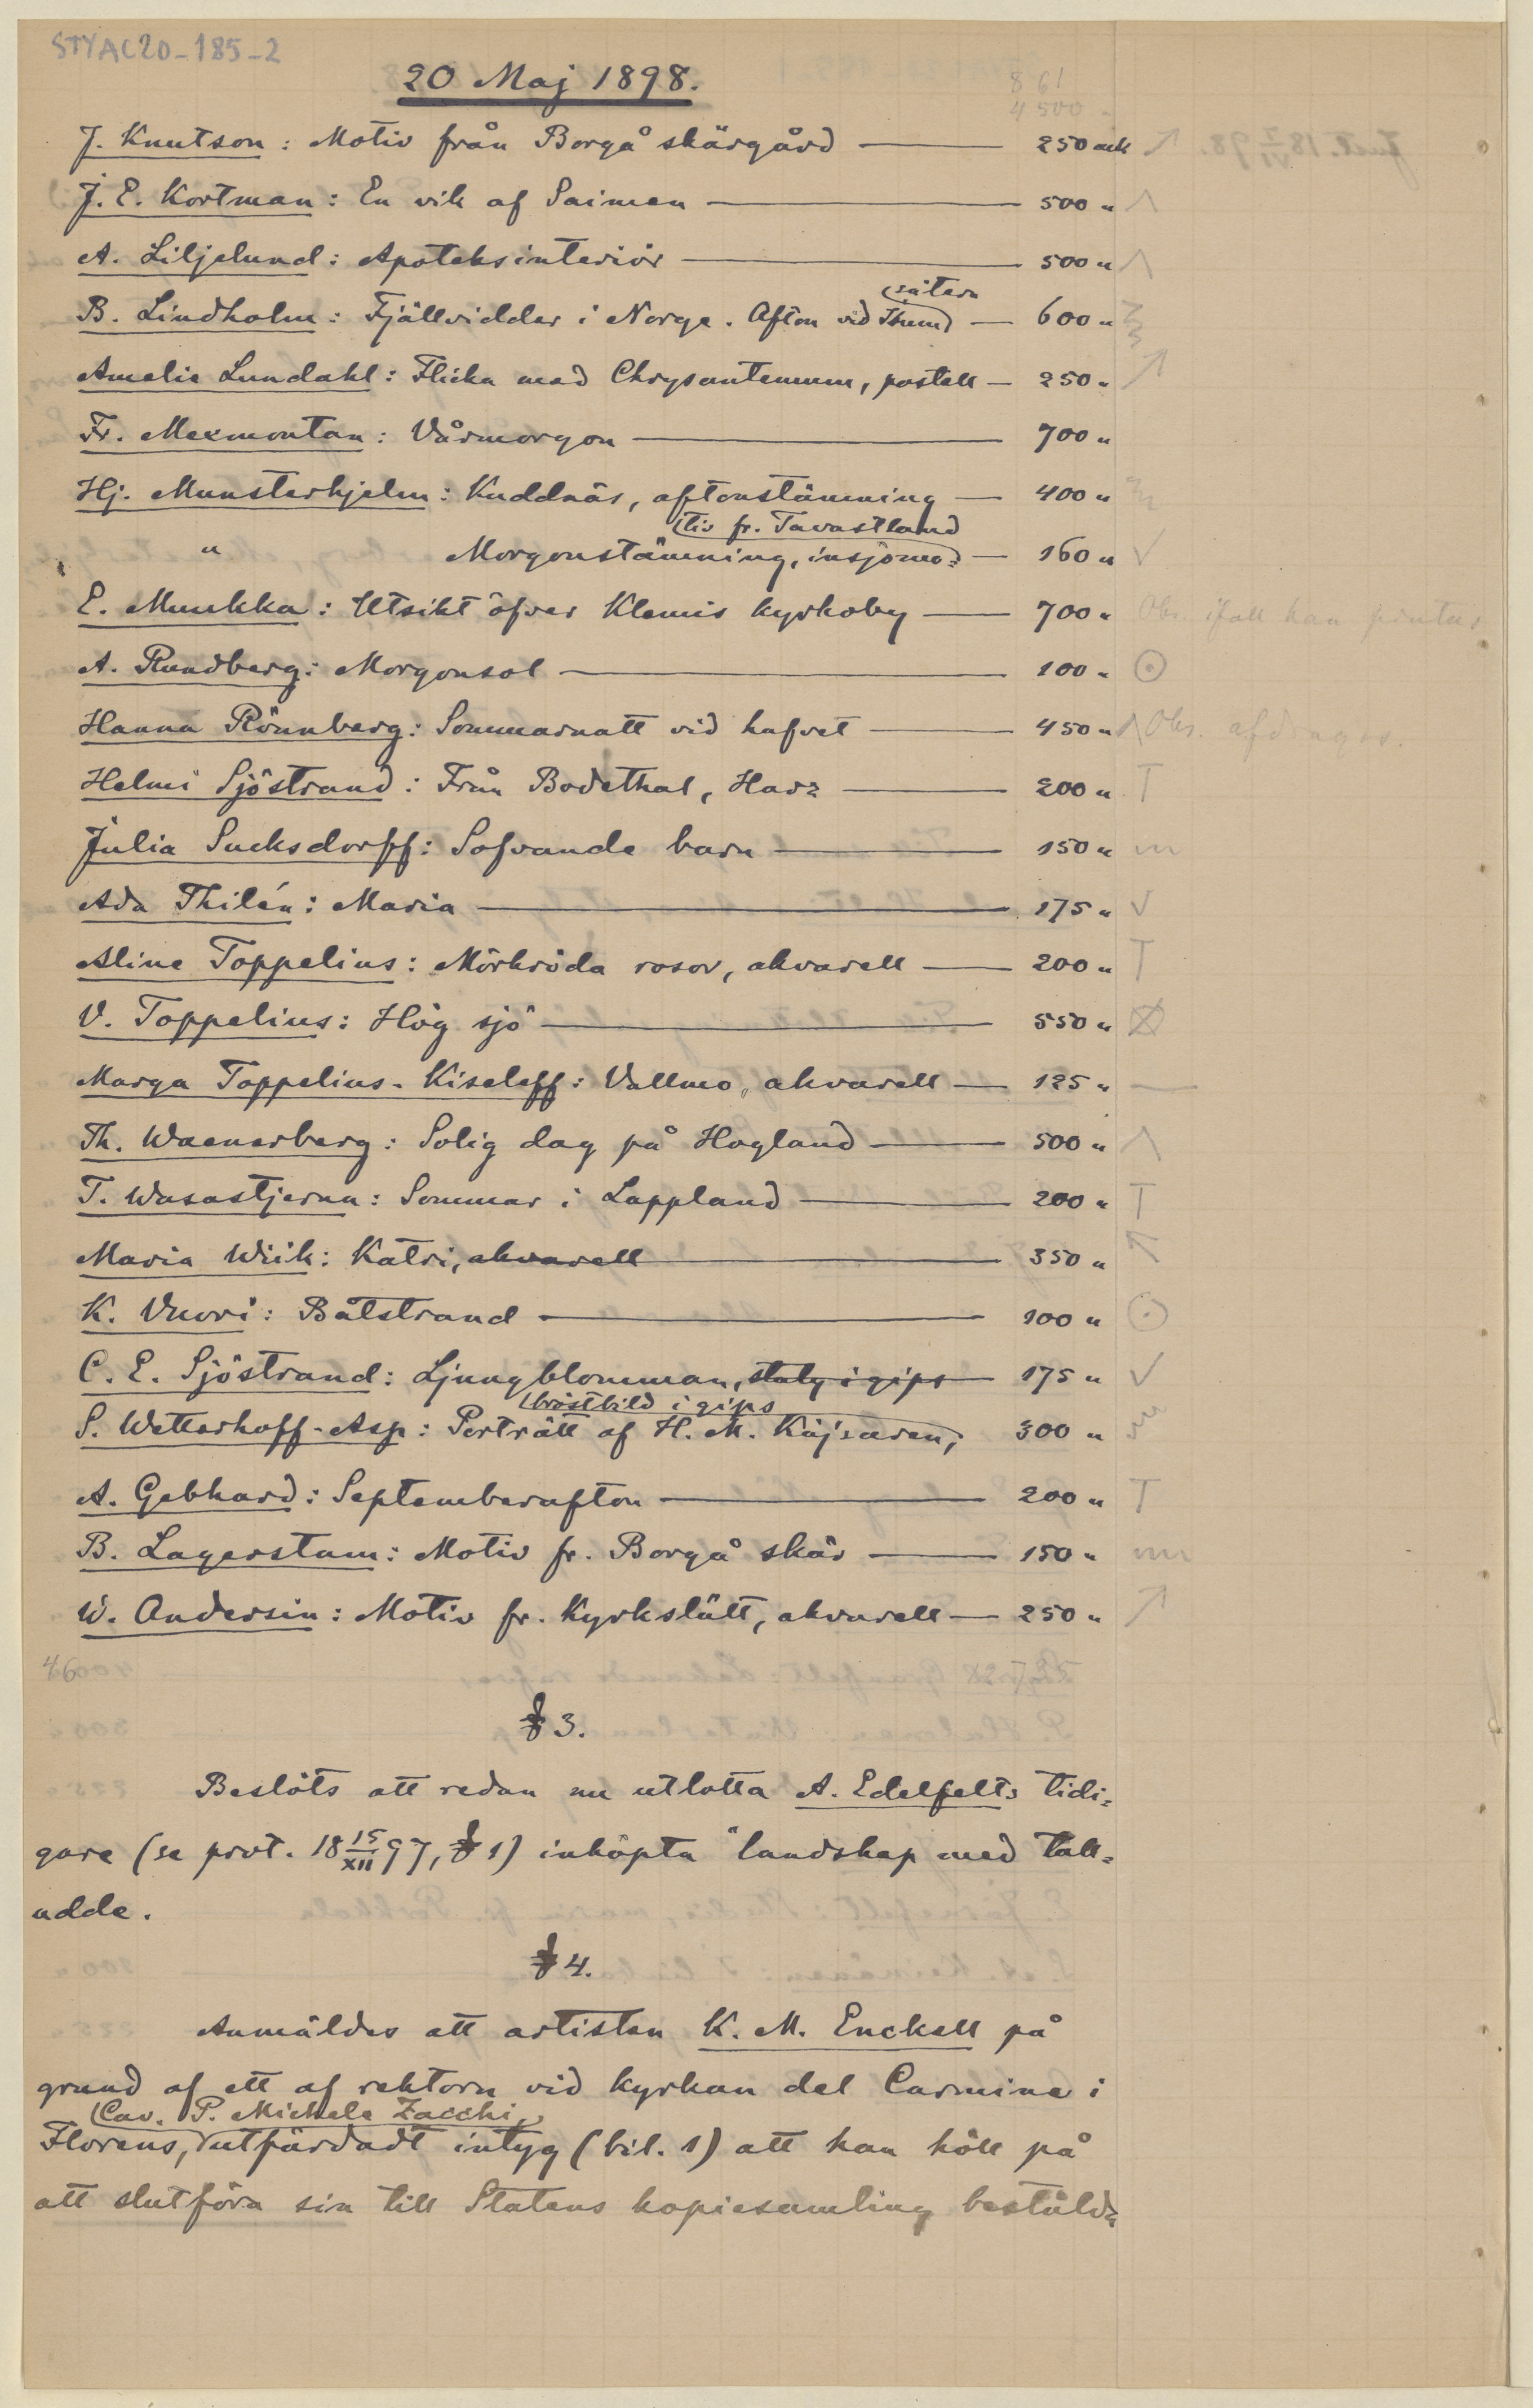 STYAC20-185-2
20 Maj 1898.
8 61
4 500
J. Knutson: Motiv från Borgå skärgård — 250 mk
J. E. Kortman: En vik af Saimen — 500 "
A. Liljelund: Apoteksinteriör — 500 "
B. Lindholm: Fjällvidder i Norge. Afton vid Thum sätern — 600 "
Amelie Lundahl: Flicka med Chrysantemum, pastell — 250 "
Fr. Mexmontan: Vårmorgon — 700 "
Hj. Munsterhjelm: Kuddnäs, aftonstämning — 400 "
" Morgonstämning, insjömo=tiv fr. Tavastland — 160 "
E. Muukka: Utsikt öfver Klemis kyrkoby — 700 " Obs. ifall han
A. Rundberg: Morgonsol — 100 "
Hanna Rönnberg: Sommarnatt vid hafvet — 450 " Obs. afdrages.
Helmi Sjöstrand: Från Bodethal, Harz — 200 "
Julia Sucksdorff: Sofvande barn — 150 "
Ada Thilén: Maria — 175 "
Aline Toppelius: Mörkröda rosor, akvarell — 200 "
V. Toppelius: Hög sjö — 550 "
Marga Toppelius-Kiseleff: Vallmo, akvarell — 125 "
Th. Waenerberg: Solig dag på Hogland — 500 "
T. Wasastjerna: Sommar i Lappland — 200 "
Maria Wiik: Katri, akvarell — 350 "
K. Vuori: Båtstrand — 100 "
C. E. Sjöstrand: Ljungblomman, staty i gips — 175 "
S. Wetterhoff-Asp: Porträtt af H. M. Kejsaren, bröstbild i gips 300 "
A. Gebhard: Septemberafton — 200 "
B. Lagerstam: Motiv fr. Borgå skär — 150 "
W. Andersin: Motiv fr. Kyrkslätt, akvarell — 250 "
46
§ 3.
Beslöts att redan nu utlotta A. Edelfelts tidi=
gare (se prot. 18 15/XII 97, § 1) inköpta "landskap med tall=
udde.
§ 4.
Anmäldes att artisten K. M. Enckell på
grund af ett af rektorn vid kyrkan del Carmine i
Florens, Cav. P. Michele Zacchi, utfärdadt intyg (bil. 1) att han höll på
att slutföra sin till Statens kopiesamling bestäld=